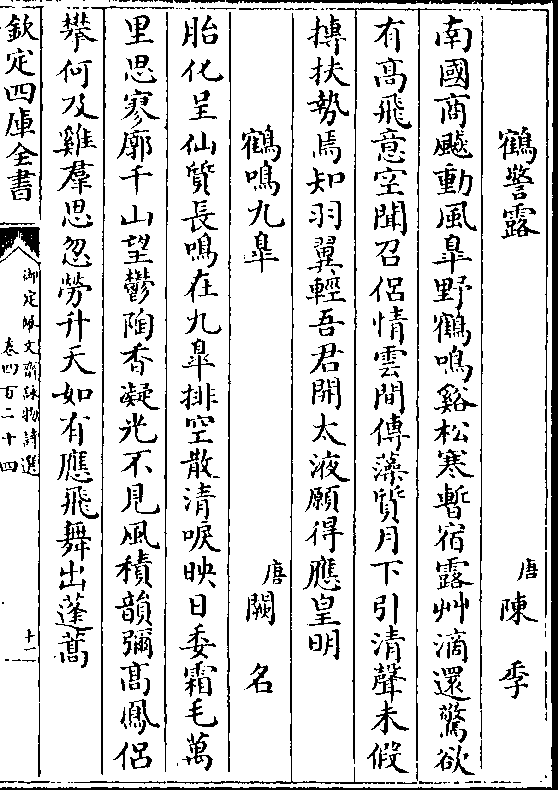 鶴警露 唐 陳季
南國商飈動風皐野鶴鳴谿松寒暫宿露艸滴還驚欲
有髙飛意空聞召侶情雲間傳藻質月下引清聲未假
摶扶勢焉知羽翼輕吾君開太液願得應皇明
鶴鳴九皐 唐 闕名
胎化呈仙質長鳴在九皐排空散清唳映日委霜毛萬
里思寥廓千山望鬱陶香凝光不見風積韻彌髙鳳侶
攀何及雞羣思忽勞升天如有應飛舞出蓬蒿
欽定四庫全書
御定佩文齋詠物詩選
卷四百二十四
十一